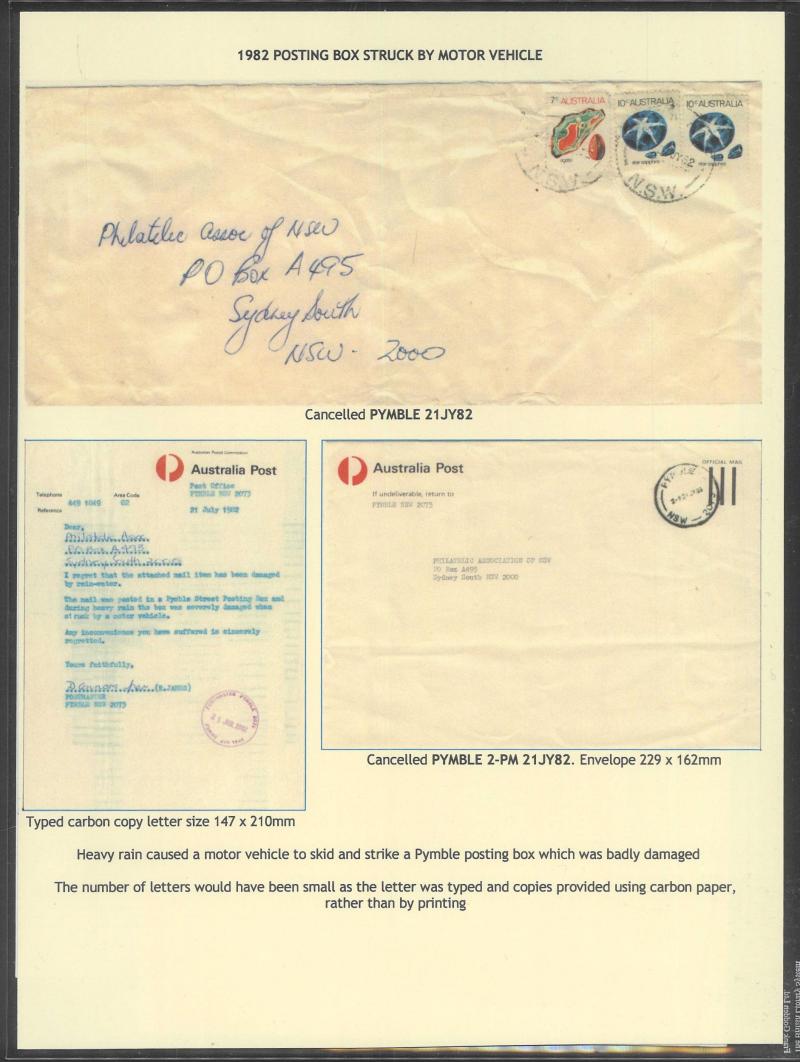 1982 POSTING BOX STRUCK BY MOTOR VEHICLE
7c AUSTRALIA 10c AUSTRALIA 10c AUSTRALIA
agate star sapphire star sapphire
JY82
N.S.W. N.S.W.
Philatelic Assoc of NSW
PO Box A495
Sydney South
NSW - 2000
Cancelled PYMBLE 21JY82
Australian Postal Commission
Australia Post
Post Office
PYMBLE NSW 2073
Telephone Area Code
449 1049 02
Reference
21 July 1982
Dear,
Philatelic Assoc
PO Box A495
Sydney South 2000
I regret that the attached mail item has been damaged
by rain-water.
The mail was posted in a Pymble Street Posting Box and
during heavy rain the box was severely damaged when
struck by a motor vehicle.
Any inconvenience you have suffered is sincerely
regretted.
Yours faithfully,
(R.JAMES)
POSTMASTER
PYMBLE NSW 2073
Australia Post
OFFICIAL MAIL
If undeliverable, return to
PYMBLE NSW 2073
PYMBLE
NSW — 2073
PHILATELIC ASSOCIATION OF NSW
PO Box A495
Sydney South NSW 2000
Cancelled PYMBLE 2-PM 21JY82. Envelope 229 x 162mm
Typed carbon copy letter size 147 x 210mm
Heavy rain caused a motor vehicle to skid and strike a Pymble posting box which was badly damaged
The number of letters would have been small as the letter was typed and copies provided using carbon paper,
rather than by printing